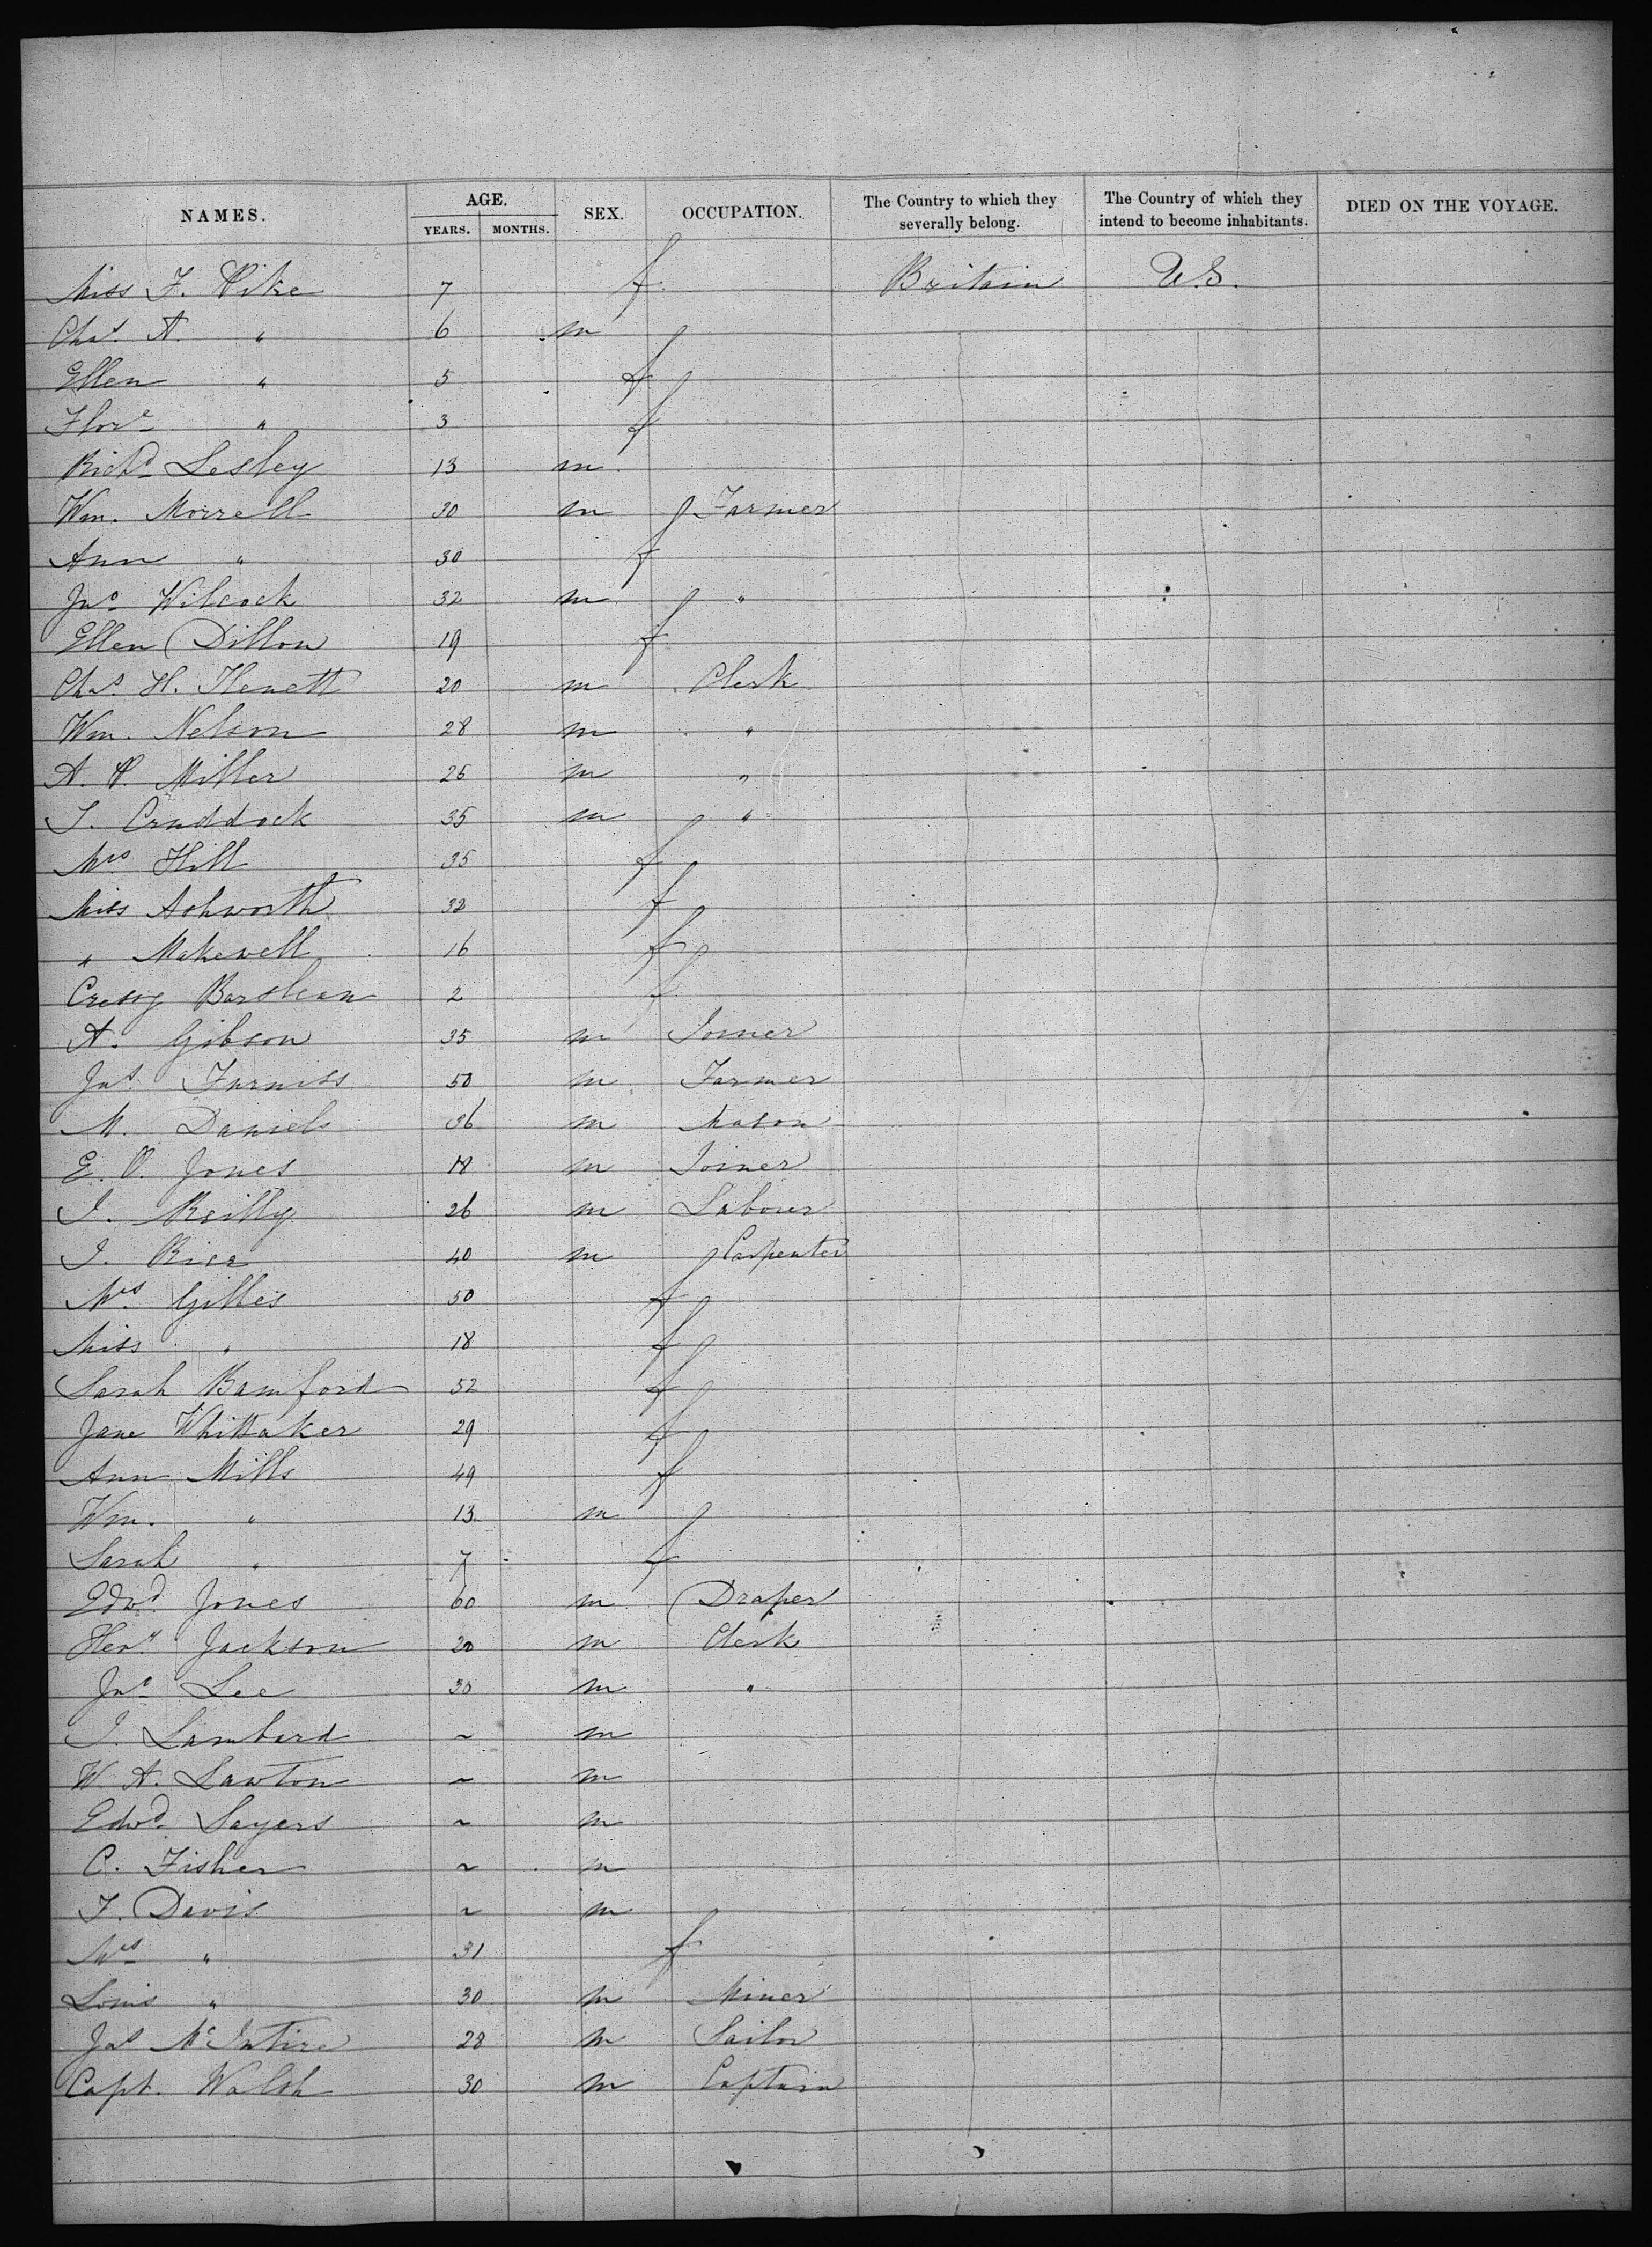 NAMES. AGE. SEX. OCCUPATION. The Country to which they severally belong. The Country of which they intend to become inhabitants. DIED ON THE VOYAGE.
YEARS. MONTHS.
Miss F. Pike 7 f Britain U.S.
Chas. A. " 6 m
Ellen " 5 f
Flore " 3 f
Richd Lesley 13 m
Wm. Morrell 30 m Farmer
Ann " 30 f
Jno Wilcock 32 m "
Ellen Dillon 19 f
Chas. H. Hewett 20 m Clerk
Wm. Nelson 28 m "
A. P. Miller 25 m "
J. Craddock 35 m "
Mrs Hill 35 f
Miss Ashworth 32 f
" Makewell 16 f
Cressy 2 f
A. Gibson 35 m Joiner
Jas. Furniss 50 m Farmer
M. Daniels 36 m Mason
E. O. Jones 18 m Joiner
J. Reilly 26 m Labour
J. Rice 40 m Carpenter
Mrs Gilles 50 f
Miss " 18 f
Sarah Bamford 52 f
Jane Whittaker 29 f
Ann Mills 49 f
Wm. " 13 m
Sarah " 7 f
Edwd. Jones 60 m Draper
Heny Jackson 20 m Clerk
Jno Lee 30 m "
J. Lambard ~ m
W. A. Lawton ~ m
Edwd. Sayers ~ m
C. Fisher ~ m
F. Davis ~ m
Mrs " 31 f
Louis " 30 m Miner
Jas McIntire 28 m Sailor
Capt. Walsh 30 m Captain